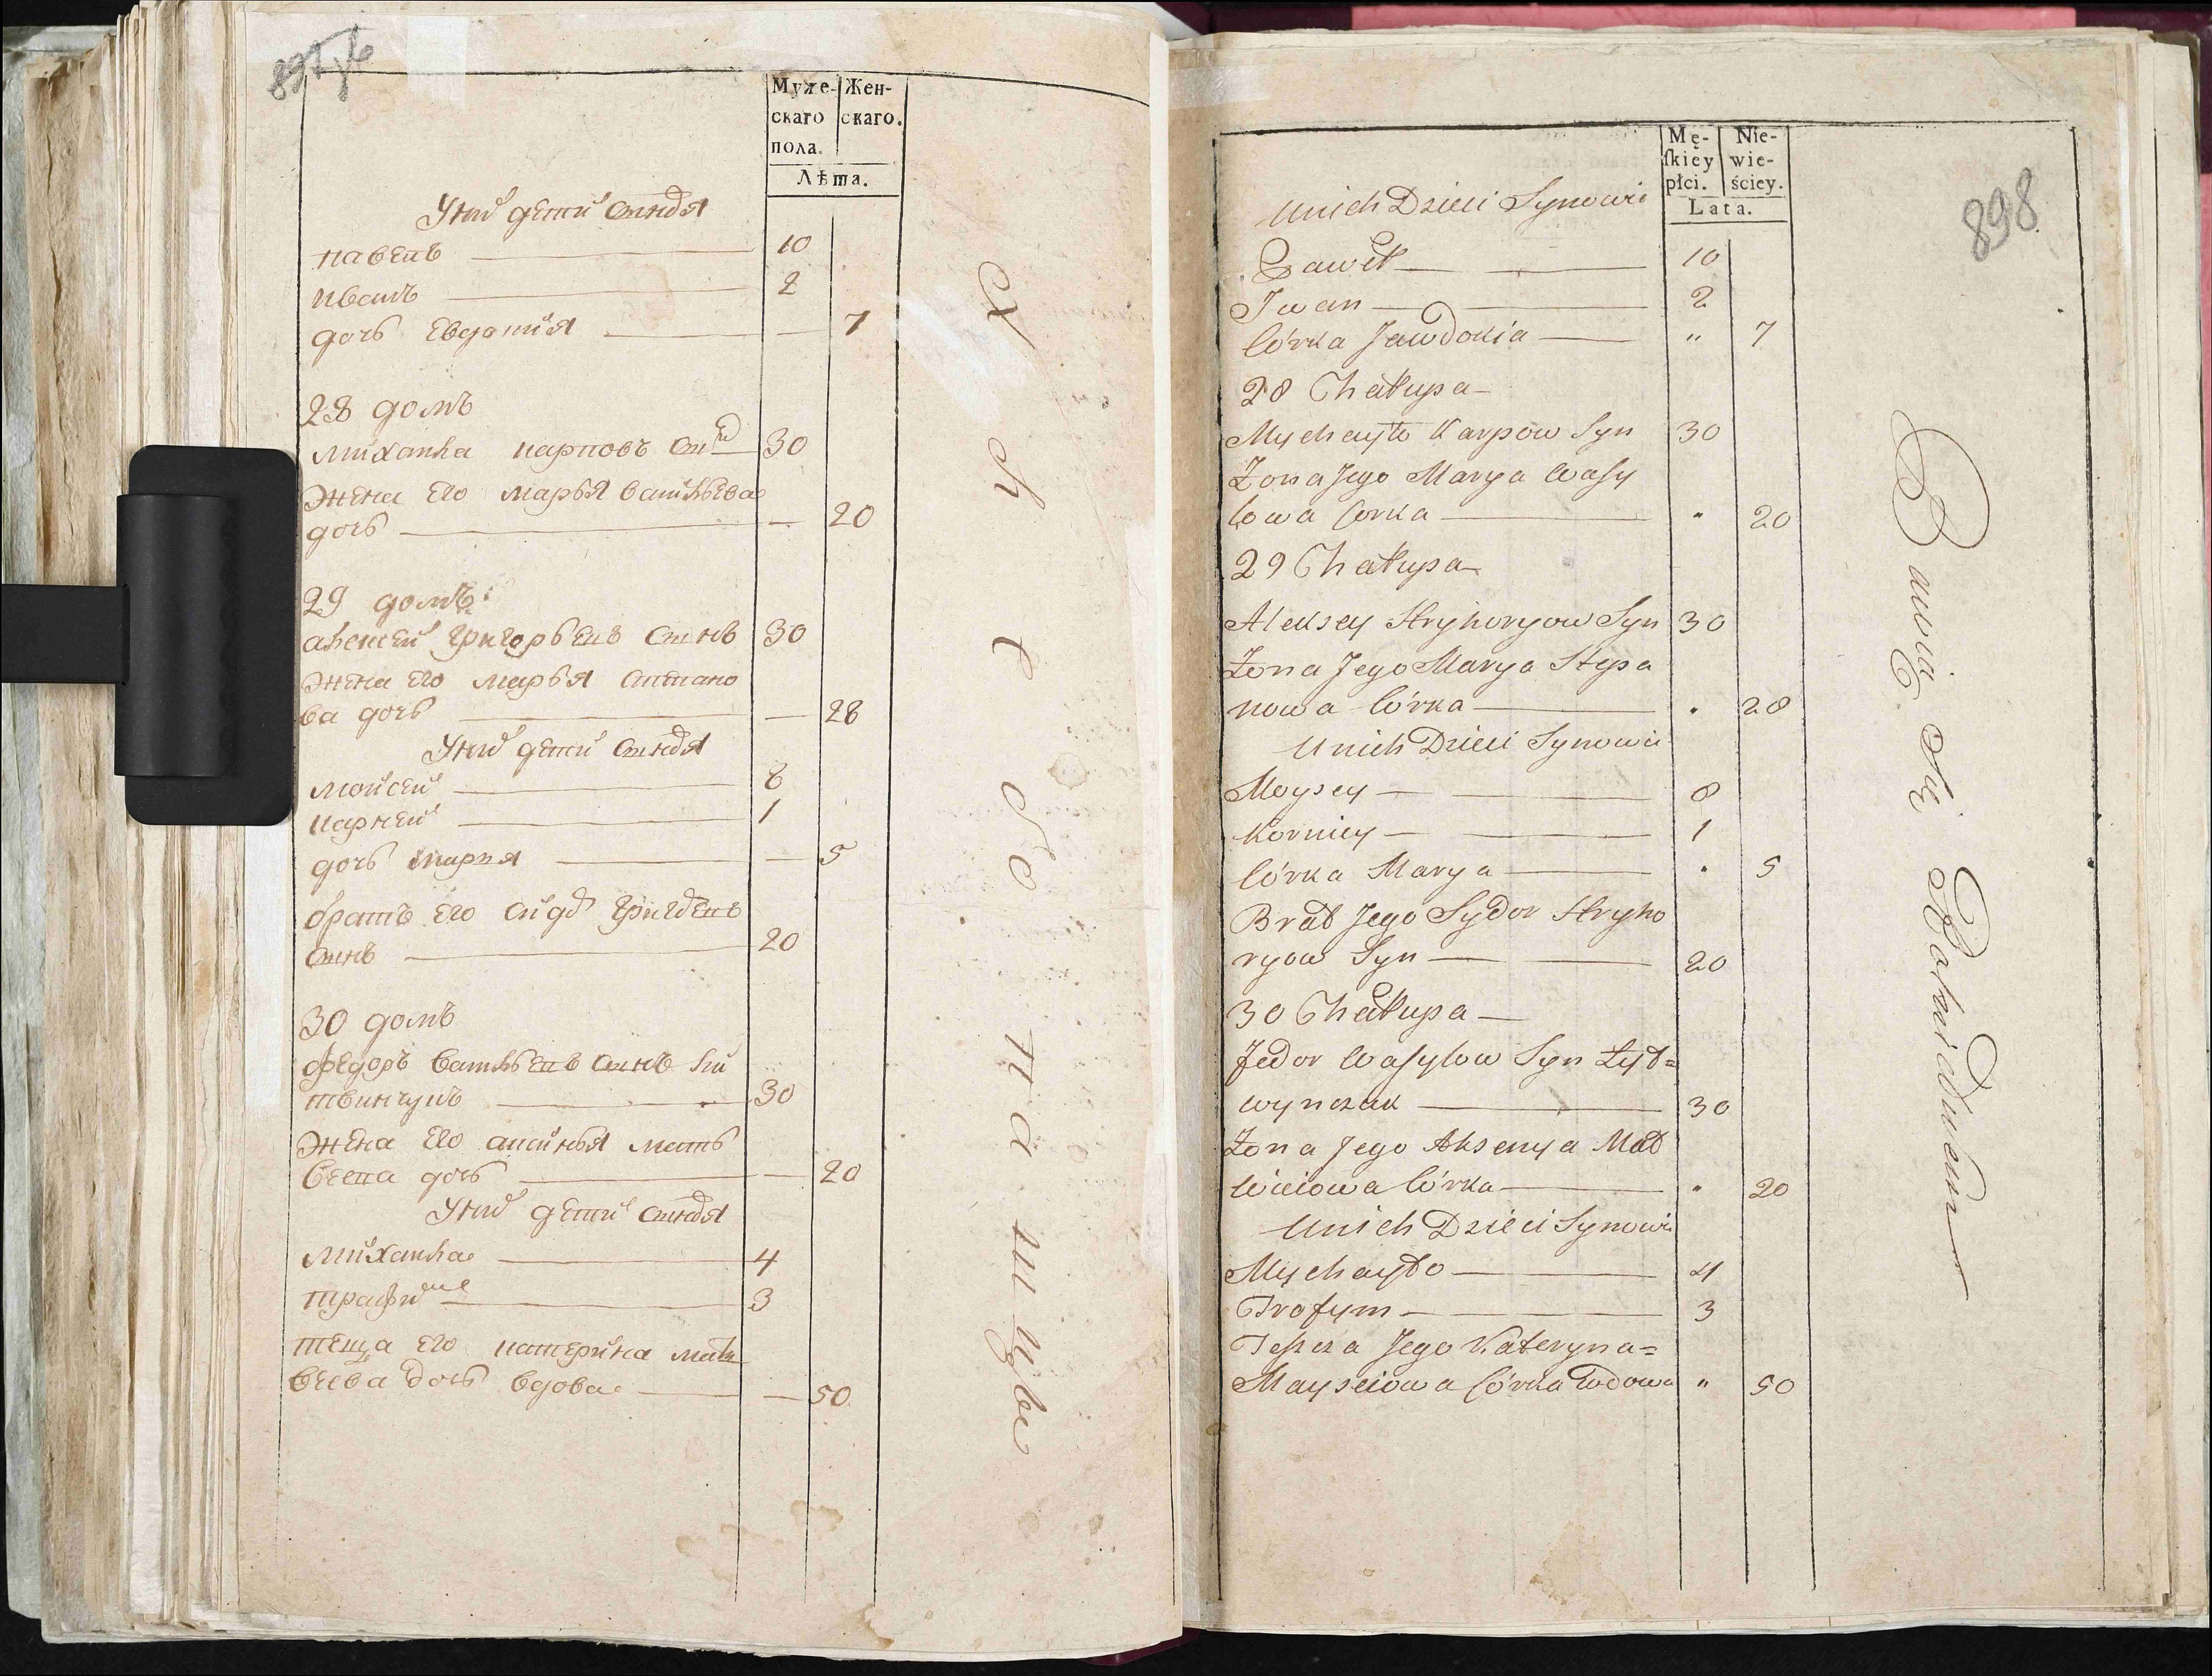 897 об
Муже-
скаго
пола.
Жен-
скаго.
Лѣта.
У них дети сновя
павелъ 10
иванъ 2
дочь Евдокия — 7
28 домъ
михайла карповъ снъ 30
Жена Его марья васильева
дочь — 20
29 домъ
алексей григорьевъ снъ 30
Жена Его марья степано
ва дочь — 28
У них дети сновя
мойсей 8
карней 1
дочь мария — 5
братъ Его сидор григоревъ
снъ 20
30 домъ
федоръ васильевъ снъ ли
твинчукъ 30
Жена Его аксинья мать
веева дочь — 20
У них дети сновя
михайла 4
трафим 3
теща Его катерина мать
веева дочь вдова — 50
898
Mę-
ſkiey
płci.
Nie-
wie-
ściey.
Lata.
U nich Dzieci Synowie
Paweł 10
Iwan 2
Córka Jawdokia " 7
28 Chałupa
Mychayło Karpow Syn 30
Żona Jego Marya Wasy
lowa Corka " 20
29 Chałupa
Aleksey Hryhoryow Syn 30
Żona Jego Marya Stepa
nowa Córka " 28
U nich Dzieci Synowie
Moysey 8
Korniey 1
Córka Marya " 5
Brat Jego Sydor Hryho
ryow Syn 20
30 Chałupa
Fedor Wasylow Syn Łyt=
wynczuk 30
Żona Jego Aksenya Mat
wiciowa Córka " 20
U nich Dzieci Synowie
Mychayło 4
Trofym 3
Teszcza Jego Kateryna=
Mayseiowa Córka Wdowa " 50
Bawią się Rolnictwem